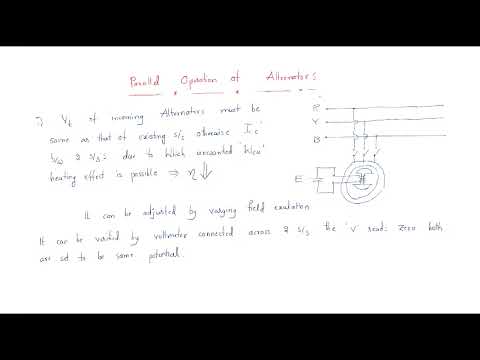 Parallel Operation of Alternators
1) Vt of incoming Alternators must be
same as that of existing s/s otherwise Ic
b/w 2 s/s due to which unwanted Wcu
heating effect is possible ⇒ η ⇓
It can be adjusted by varying field excitation
It can be verified by voltmeter connected across 2 s/s the 'V' reads zero both
are at to be same potential.
R
Y
B
E